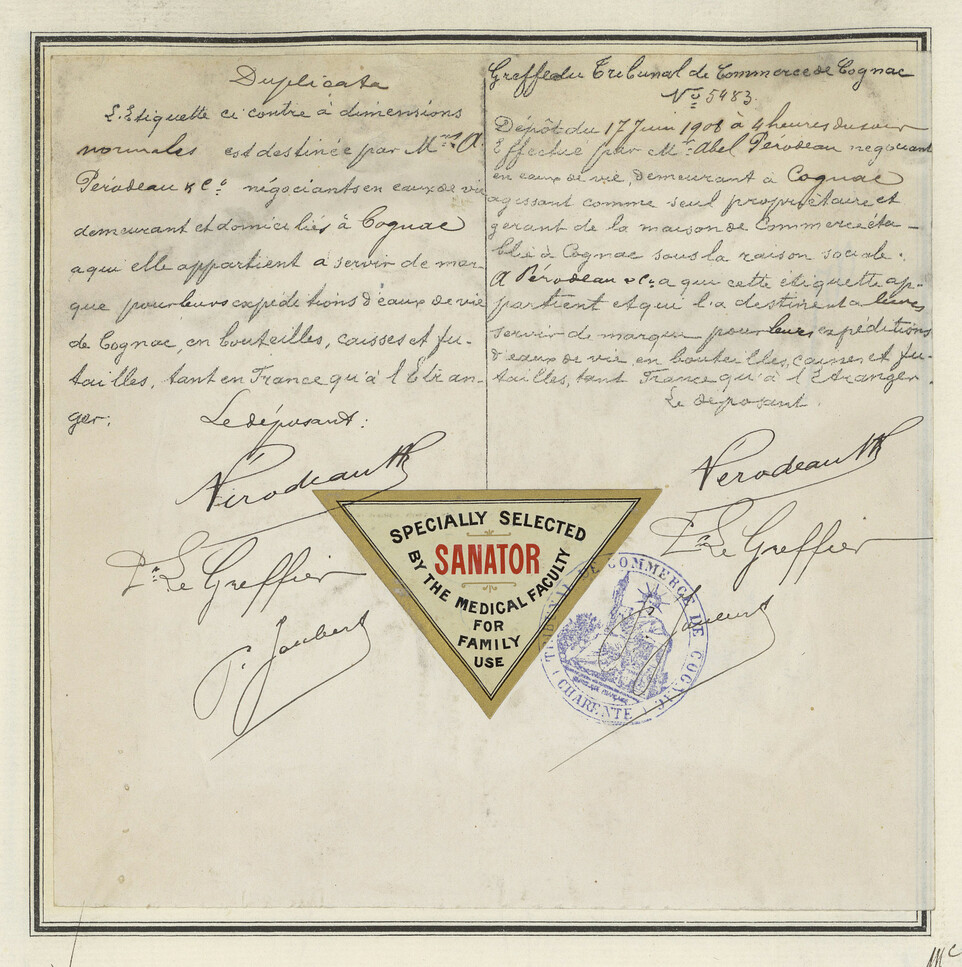 Duplicata
L'Etiquette ci contre à dimensions
normales est destinée par Mrs A.
Pérodeau & Co négociants en eaux de vie
demeurant et domiciliés à Cognac
a qui elle appartient a servir de mar-
que pour leurs expéditions d'eaux de vie
de Cognac, en bouteilles, caisses et fu-
tailles, tant en France qu'à l'Etran-
ger:
Le déposant:
Pérodeau
Pr Le Greffier
P. Joubert
Greffe du Tribunal de Commerce de Cognac
No 5483.
Dépôt du 17 Juin 1908 à 4 heures du soir
Effectué par Mr Abel Pérodeau négociant
en eaux de vie, demeurant à Cognac
agissant comme seul propriétaire et
gerant de la maison de Commerce éta-
blie à Cognac sous la raison sociale:
A Pérodeau & Co a qui cette étiquette ap-
partient et qui l'a destine à leurs
servir de marque pour leurs expéditions
d'eaux de vie, en bouteilles, caisses et fu-
tailles, tant France qu'à l'Etranger.
Le déposant.
Pérodeau
Pr Le Greffier
P. Joubert
SPECIALLY SELECTED
SANATOR
BY THE MEDICAL FACULTY
FOR
FAMILY
USE
TRIBUNAL DE COMMERCE DE COGNAC
(CHARENTE)
Mc